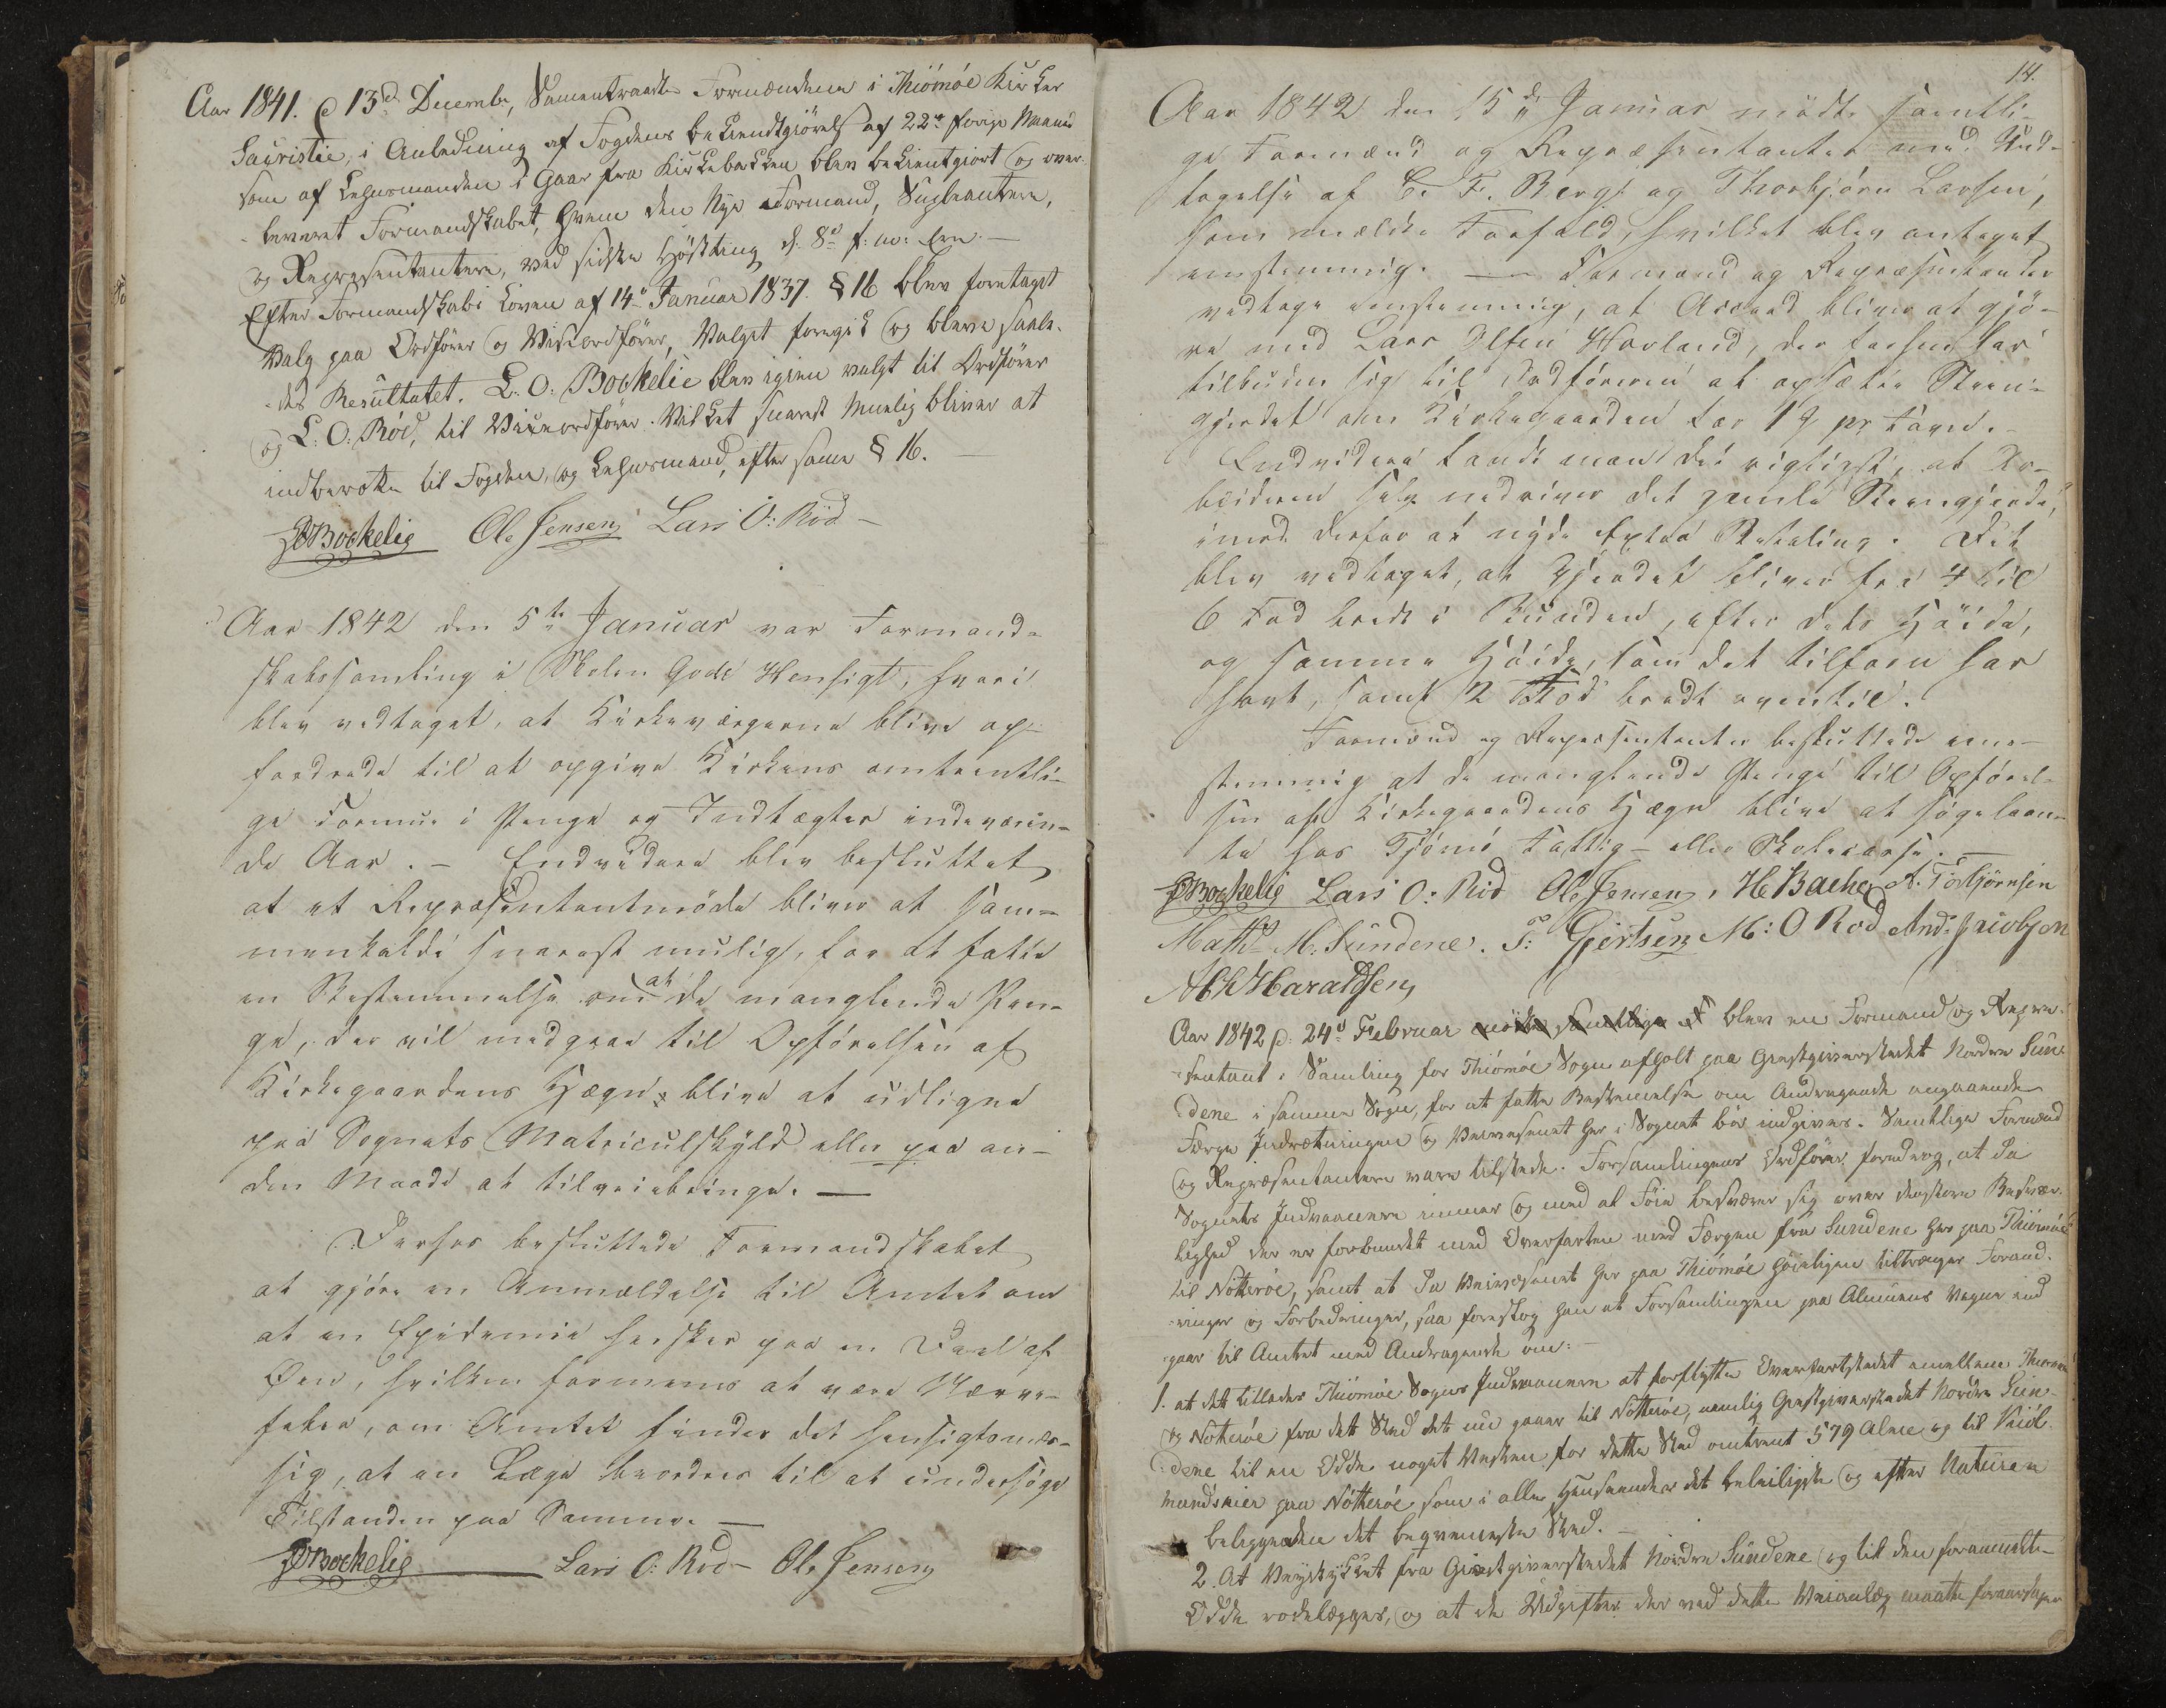 Aar 1841. d 13de Decembr, Samentraadte Formændene i Thiömöe Kirkes
Sacristie, i Anledning af Fogdens bekiendtgiörelse af 22de forige Maaned
som af Lehnsmanden i Gaar fra Kirkebakken blev bekientgiort og over-
leveret Formandskabet, hvem den Nye Formand, Supleantere,
og Representantere, ved sidste Hösthing d. 8de f: m: ere. —
Efter Formandskabs Loven af 14de Januar 1837. § 16 blev foretaget
Valg paa Ordförer og Viseordförer, Valget foregik og bleve saale-
des Resultatet. L. O: Bockelie blev igien valgt til Ordförer
og L: O: Röd, til Viseordförer. Vilket snarest Muelig bliver at
indberette til Fogden, og Lehnsmand, efter same § 16. —
LOBockelie Ole Jensen Lars O: Röd —
Aar 1842 den 5te Januar var Formand-
skabssamling i Skolen Gode Hensigt, hvori
blev vedtaget, at Kirkeværgerne blive op-
fordrede til at opgive Kirkens omtrentli-
ge Formue i Penge og Indtægter indeværen-
de Aar. — Endvidere blev besluttet
at et Repræsentantmöde bliver at sam-
menkalde snarest mulig, for at fatte
en Bestemmelse om at de manglende Pen-
ge, der vil medgaae til Opförelsen af
Kirkegaardens Hægn, blive at udligne
paa Sognets Matriculskyld eller paa an-
den Maade at tilveiebringe. —
Derhos besluttede Formandskabet
at gjöre en Anmældelse til Amtet om
at en Epidemie hersker paa en Deel af
Öen, hvilken formenes at være Nerve-
feber, om Amtet finder det hensigtsmæs-
sig, at en Læge beordres til at undersöge
Tilstanden paa Samme. —
LOBockelie Lars O. Röd — Ole Jensen
14.
Aar 1842 den 15de Januar mödte samtli-
ge Formænd og Repræsentanter med Und-
tagelse af C. F. Bergh og Thorbjörn Larsen,
som meldte Forfald, hvilket blev antaget
eenstemmig. — Formænd og Repræsentanter
vedtoge eenstemmig, at Accord bliver at gjö-
re med Lars Olsen Havland, der forhen har
tilbuden sig til Ordföreren at opsætte Steen-
gjerdet om Kirkegaarden for 1 pr Favn. —
Endvidere fandt man det rigtigst, at Ar-
beideren selv nedriver det gamle Steengjerde,
imod derfor at nyde Extra Betaling. Det
blev vedtaget, at Gjerdet bliver fra 4 til
6 Fod bredt i Bunden, efter dets Höide,
og samme Höide, som det tilforn har
havt, samt 2 Fod bredt oventil.
Formænd og Repræsentanter besluttede een-
stemmig at de manglende Penge til Opförel-
sen af Kirkegaardens Hægn blive at söge laan-
te hos Tjömö Fattig- eller Skolecasse. —
LOBockelie Lars O: Röd Ole Jensen, H Bache A. Torbjörnsen
Maths M. Sundene. T: Gjertsen M: O Röd And: Jacobsen
A Haraldsen
Aar 1842 d: 24d Februar mötte samtlige F blev en Formand og Repre-
sentant, Samling for Thiömöe Sogn afholt paa Giestgiverstedet Nordre Sun-
dene i samme Sogn, for at fatte Bestemelse om Andragende angaaende
Færge Indretningen og Veivesenet her i Sognet bör indgives. Samtlige Formænd
og Repræsentantere vare tilstede. Forsamlingens Ordförer foredrog, at da
Sognets Indvaanere immer og med al Föie besværer sig over denstore Besvær-
lighed der er forbundet med Overfarten med Færgen fra Sundene her paa Thiömöe
til Nötteröe, samt at da Veivæsenet her paa Thiömöe höieligen tiltrænger Forand-
ringer og Forbedringer, saa foreslog han at Forsamlingen paa Almuens Vegne ind
gaar til Amtet med Andragende om: —
1. at det tillades Thiömöe Sogns Indvaanere at forflytte Overfartstedet emellem Thiömöe
og Nötteröe fra det Sted det nu gaaer til Nötteröe, nemlig Giestgiverstedet Nordre Sun-
dene til en Odde noget Vesten for dette Sted omtrent 579 Alne og til
paa Nötteröe som i alle Henseender det beleiligste og efter Naturen
beliggenden det beqvemmeste Sted. —
2. At Veystykket fra Giestgiverstedet Nordre Sundene og til den foranmelte
Odde rodelægges, og at de Udgifter der ved dette Veianlæg maatte foraarsages